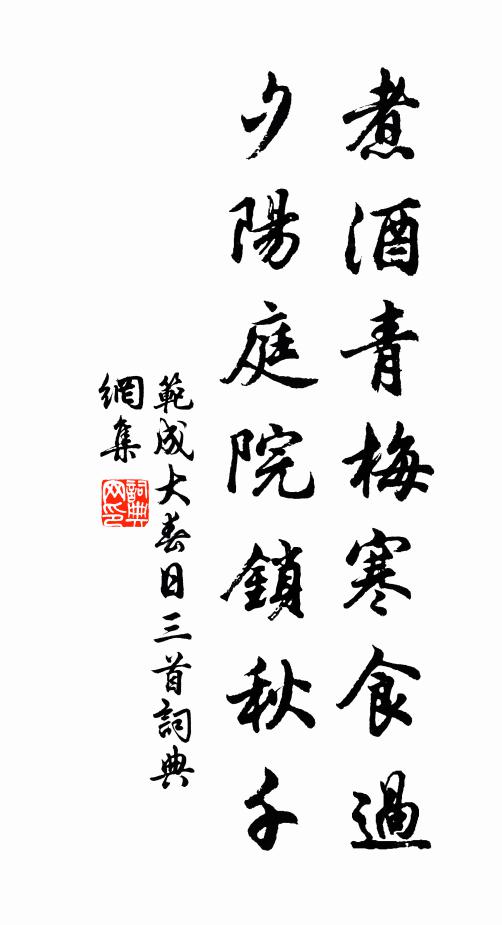 煮酒青梅寒食過
夕陽庭院鎖秋千
範成大春日三首詞典
網集
詞典
网印